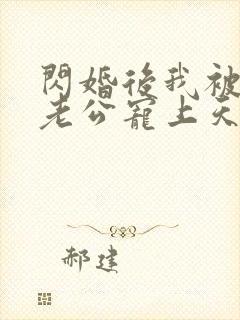 閃婚後我被
老公寵上天
郝建